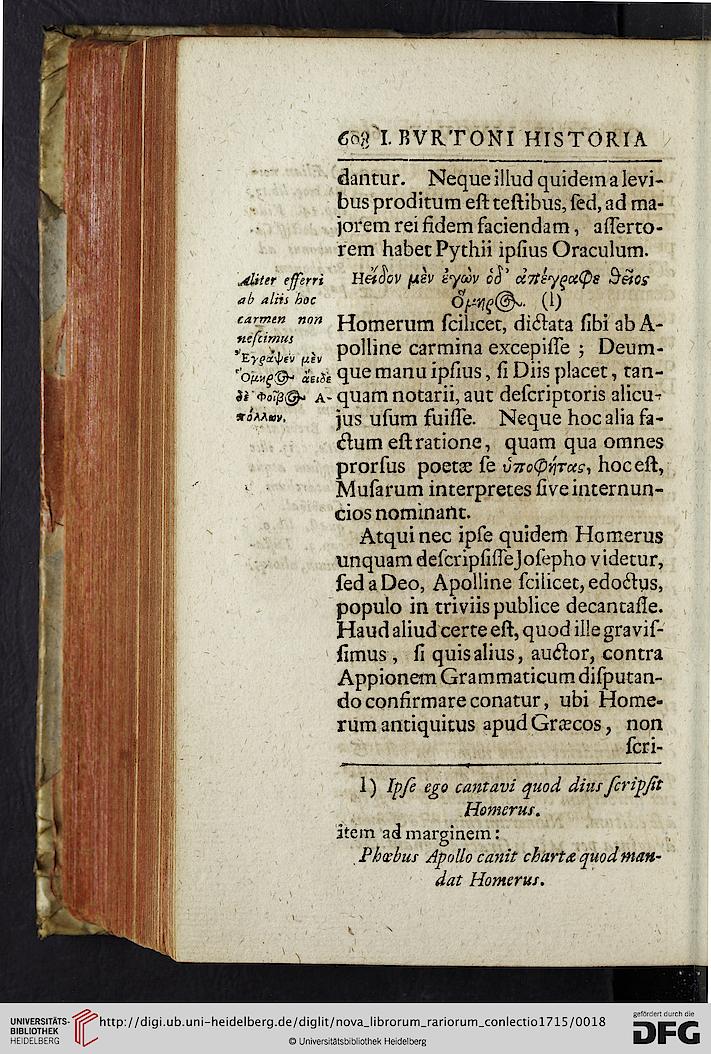 608 I. BVRTONI HISTORIA
dantur. Neque illud quidem a levi-
bus proditum eſt teſtibus, ſed, ad ma-
jorem rei fidem faciendam, aſſerto-
rem habet Pythii ipſius Oraculum.
Ηείδον μὲν ἐγὼν ὁδ' ἀπέγραφε θεῖος
Ὅμηρος. (l)
Homerum ſcilicet, dictata ſibi ab A-
polline carmina excepiſſe ; Deum-
que manu ipſius, ſi Diis placet, tan-
quam notarii, aut deſcriptoris alicu-
jus uſum fuiſſe. Neque hoc alia fa-
ctum eſt ratione, quam qua omnes
prorſus poetæ ſe ὑποφήτας, hoc eſt,
Muſarum interpretes ſive internun-
cios nominant.
Aliter efferri
ab aliis hoc
carmen non
neſcimus
Ἔγραψεν μὲν
Ὅμηρος ἄειδε
δὲ Φοῖβος Α-
πόλλων.
Atqui nec ipſe quidem Homerus
unquam deſcripſiſſe Joſepho videtur,
ſed a Deo, Apolline ſcilicet, edoctus,
populo in triviis publice decantaſſe.
Haud aliud certe eſt, quod ille graviſ-
ſimus, ſi quis alius, auctor, contra
Appionem Grammaticum diſputan-
do confirmare conatur, ubi Home-
rum antiquitus apud Græcos, non
ſcri-
l) Ipſe ego cantavi quod dius ſcripſit
Homerus.
item ad marginem:
Phœbus Apollo canit chartæ quod man-
dat Homerus.
UNIVERSITÄTS-
BIBLIOTHEK
HEIDELBERG
http://digi.ub.uni-heidelberg.de/diglit/nova_librorum_rariorum_conlectio1715/0018
© Universitätsbibliothek Heidelberg
gefördert durch die
DFG